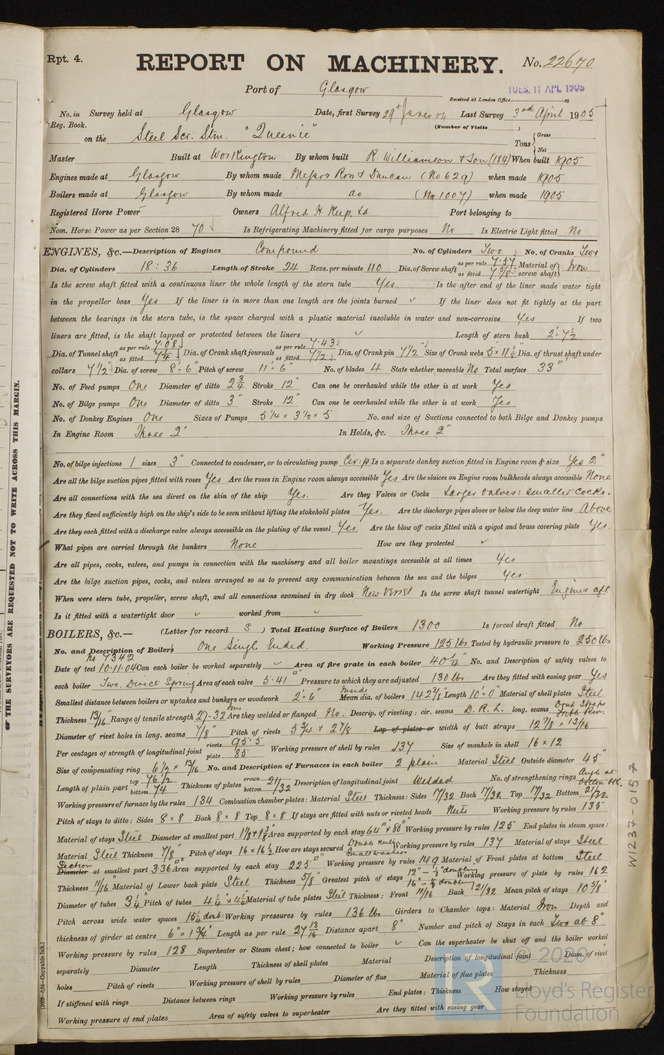 Rpt. 4.
REPORT ON MACHINERY.
No. 22670
Port of Glasgow
Received at London Office TUES. 11 APL 1905
No. in Survey held at Glasgow Date, first Survey Last Survey 3rd April 1905
Reg. Book. (Number of Visits)
on the Steel Scr. Stm. "Queenie" Tons Gross Net
Master Built at Workington By whom built R. Williamson & Son (184) When built 1905
Engines made at Glasgow By whom made Messrs Ross & Duncan (No 629) when made 1905
Boilers made at Glasgow By whom made do (No 1007) when made 1905
Registered Horse Power Owners Alfred H Keep, Ld Port belonging to
Nom. Horse Power as per Section 28 70 Is Refrigerating Machinery fitted for cargo purposes No Is Electric Light fitted No
ENGINES, &c.—Description of Engines Compound No. of Cylinders Two No. of Cranks Two
Dia. of Cylinders 18 : 36 Length of Stroke 24 Revs. per minute 110 Dia. of Screw shaft as per rule 7.57 as fitted 7 5/8 Material of screw shaft Iron
Is the screw shaft fitted with a continuous liner the whole length of the stern tube Yes. Is the after end of the liner made water tight
in the propeller boss Yes If the liner is in more than one length are the joints burned If the liner does not fit tightly at the part
between the bearings in the stern tube, is the space charged with a plastic material insoluble in water and non-corrosive Yes If two
liners are fitted, is the shaft lapped or protected between the liners Length of stern bush 2'-7½
Dia. of Tunnel shaft as per rule 7.08 as fitted Dia. of Crank shaft journals as per rule 7.43 as fitted 7½ Dia. of Crank pin 7½" Size of Crank webs 5 × 11½ Dia. of thrust shaft under
collars 7½" Dia. of screw 8'-6" Pitch of screw 11'-6" No. of blades 4 State whether moveable No Total surface 33
No. of Feed pumps One Diameter of ditto 2¾ Stroke 12" Can one be overhauled while the other is at work Yes
No. of Bilge pumps One Diameter of ditto 3" Stroke 12" Can one be overhauled while the other is at work Yes
No. of Donkey Engines One Sizes of Pumps 5¼ × 3½ × 5 No. and size of Suctions connected to both Bilge and Donkey pumps
In Engine Room Three 2" In Holds, &c. Three 2"
No. of bilge injections 1 sizes 3" Connected to condenser, or to circulating pump Cir: p. Is a separate donkey suction fitted in Engine room & size Yes 2"
Are all the bilge suction pipes fitted with roses Yes Are the roses in Engine room always accessible Yes Are the sluices on Engine room bulkheads always accessible None
Are all connections with the sea direct on the skin of the ship Yes. Are they Valves or Cocks Larger valves: smaller cocks.
Are they fixed sufficiently high on the ship's side to be seen without lifting the stokehold plates Yes. Are the discharge pipes above or below the deep water line Above
Are they each fitted with a discharge valve always accessible on the plating of the vessel Yes Are the blow off cocks fitted with a spigot and brass covering plate Yes.
What pipes are carried through the bunkers None How are they protected
Are all pipes, cocks, valves, and pumps in connection with the machinery and all boiler mountings accessible at all times Yes
Are the bilge suction pipes, cocks, and valves arranged so as to prevent any communication between the sea and the bilges Yes
When were stern tube, propeller, screw shaft, and all connections examined in dry dock New Vessel Is the screw shaft tunnel watertight Engines aft
Is it fitted with a watertight door worked from
BOILERS, &c.— (Letter for record S) Total Heating Surface of Boilers 1300 Is forced draft fitted No
No. and Description of Boilers One Single Ended. Working Pressure 125 lbs Tested by hydraulic pressure to 250 lbs
No 7342
Date of test 10-11-04 Can each boiler be worked separately Area of fire grate in each boiler No. and Description of safety valves to
each boiler Two. Direct Spring Area of each valve 5.41 Pressure to which they are adjusted 130 lbs Are they fitted with easing gear Yes
Smallest distance between boilers or uptakes and bunkers or woodwork 2'-6" Mean dia. of boilers Length 10'-0" Material of shell plates Steel
Thickness 13/16 Range of tensile strength 27-32 Are they welded or flanged No. Descrip. of riveting: cir. seams D. R. L. long. seams
Diameter of rivet holes in long. seams 7/8" Pitch of rivets Lap of plates or width of butt straps
Per centages of strength of longitudinal joint rivets 95.5 plate 85 Working pressure of shell by rules 137 Size of manhole in shell 16 × 12
Size of compensating ring No. and Description of Furnaces in each boiler 2 plain Material Steel Outside diameter 45"
Length of plain part top 76½ bottom 74 Thickness of plates crown bottom 21/32 Description of longitudinal joint Welded No. of strengthening rings
Working pressure of furnace by the rules 134 Combustion chamber plates: Material Steel Thickness: Sides 17/32 Back 17/32 Top 17/32 Bottom 21/32
Pitch of stays to ditto: Sides 8 × 8 Back 8 × 8 Top 8 × 8 If stays are fitted with nuts or riveted heads Nuts Working pressure by rules 135
Material of stays Steel Diameter at smallest part Area supported by each stay Working pressure by rules 125 End plates in steam space:
Material Steel Thickness 7/8 Pitch of stays How are stays secured Working pressure by rules 137 Material of stays Steel
Diameter at smallest part 3.36 Area supported by each stay 225 Working pressure by rules 149 Material of Front plates at bottom Steel
Thickness 11/16 Material of Lower back plate Steel Thickness 5/8 Greatest pitch of stays Working pressure of plate by rules 162
Diameter of tubes 3¼ Pitch of tubes Material of tube plates Steel Thickness: Front 11/16 Back 21/32 Mean pitch of stays
Pitch across wide water spaces Working pressures by rules 136 lbs Girders to Chamber tops: Material Iron Depth and
thickness of girder at centre 6" × 1¾" Length as per rule Distance apart 8" Number and pitch of Stays in each Two at 8"
Working pressure by rules 128 Superheater or Steam chest; how connected to boiler Can the superheater be shut off and the boiler worked
separately Diameter Length Thickness of shell plates Material Description of longitudinal joint Diam. of rivet
holes Pitch of rivets Working pressure of shell by rules Diameter of flue Material of flue plates Thickness
If stiffened with rings Distance between rings Working pressure by rules End plates: Thickness How stayed
Working pressure of end plates Area of safety valves to superheater Are they fitted with easing gear
OF THE SURVEYORS ARE REQUESTED NOT TO WRITE ACROSS THIS MARGIN.
W1237-0157
© 2020
Lloyd's Register
Foundation